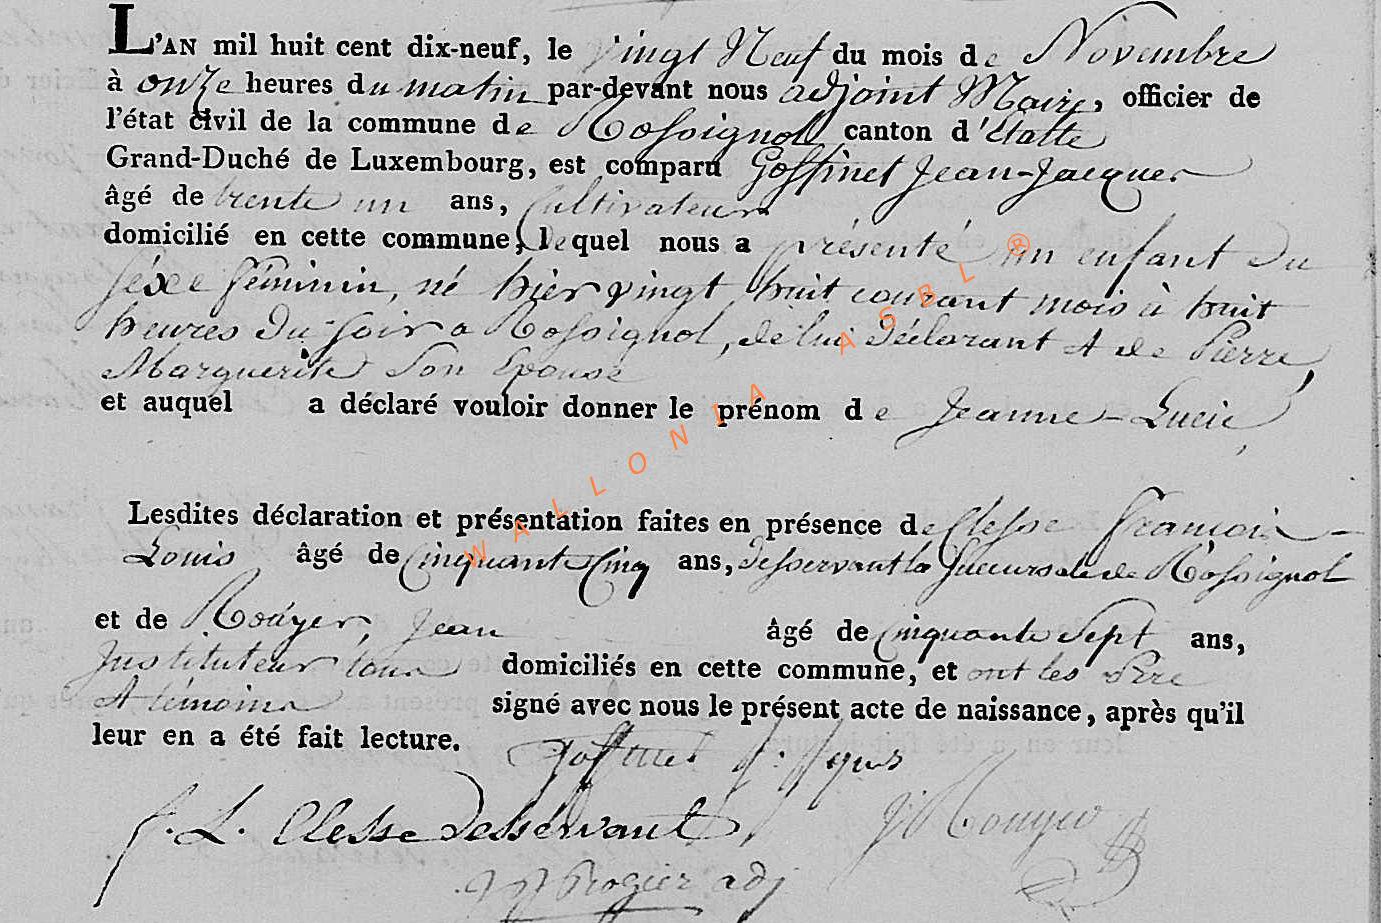 L'AN mil huit cent dix-neuf, le vingt Neuf du mois de Novembre
à onze heures du matin par-devant nous adjoint Maire, officier de
l'état civil de la commune de Rossignol canton d'Etalle
Grand-Duché de Luxembourg, est comparu Goffinet Jean-Jacques
âgé de trente un ans, Cultivateur
domicilié en cette commune, lequel nous a présenté un enfant du
séxe féminin, né hier vingt huit courant mois à huit
heures du soir a Rossignol, de lui déclarant et de Pierre,
Marguerite son Epouse
et auquel a déclaré vouloir donner le prénom de Jeanne-Lucie,
Lesdites déclaration et présentation faites en présence de Clesse François-
Louis âgé de Cinquante Cinq ans, desservant la Succursale de Rossignol
et de Rouyer, Jean âgé de Cinquante Sept ans,
Instituteur tous domiciliés en cette commune, et ont les Père
et témoins signé avec nous le présent acte de naissance, après qu'il
leur en a été fait lecture.
Goffinet J: Jques
f. L. Clesse desservant J Rouyer
Rogier adj
WALLONIA ASBL ®